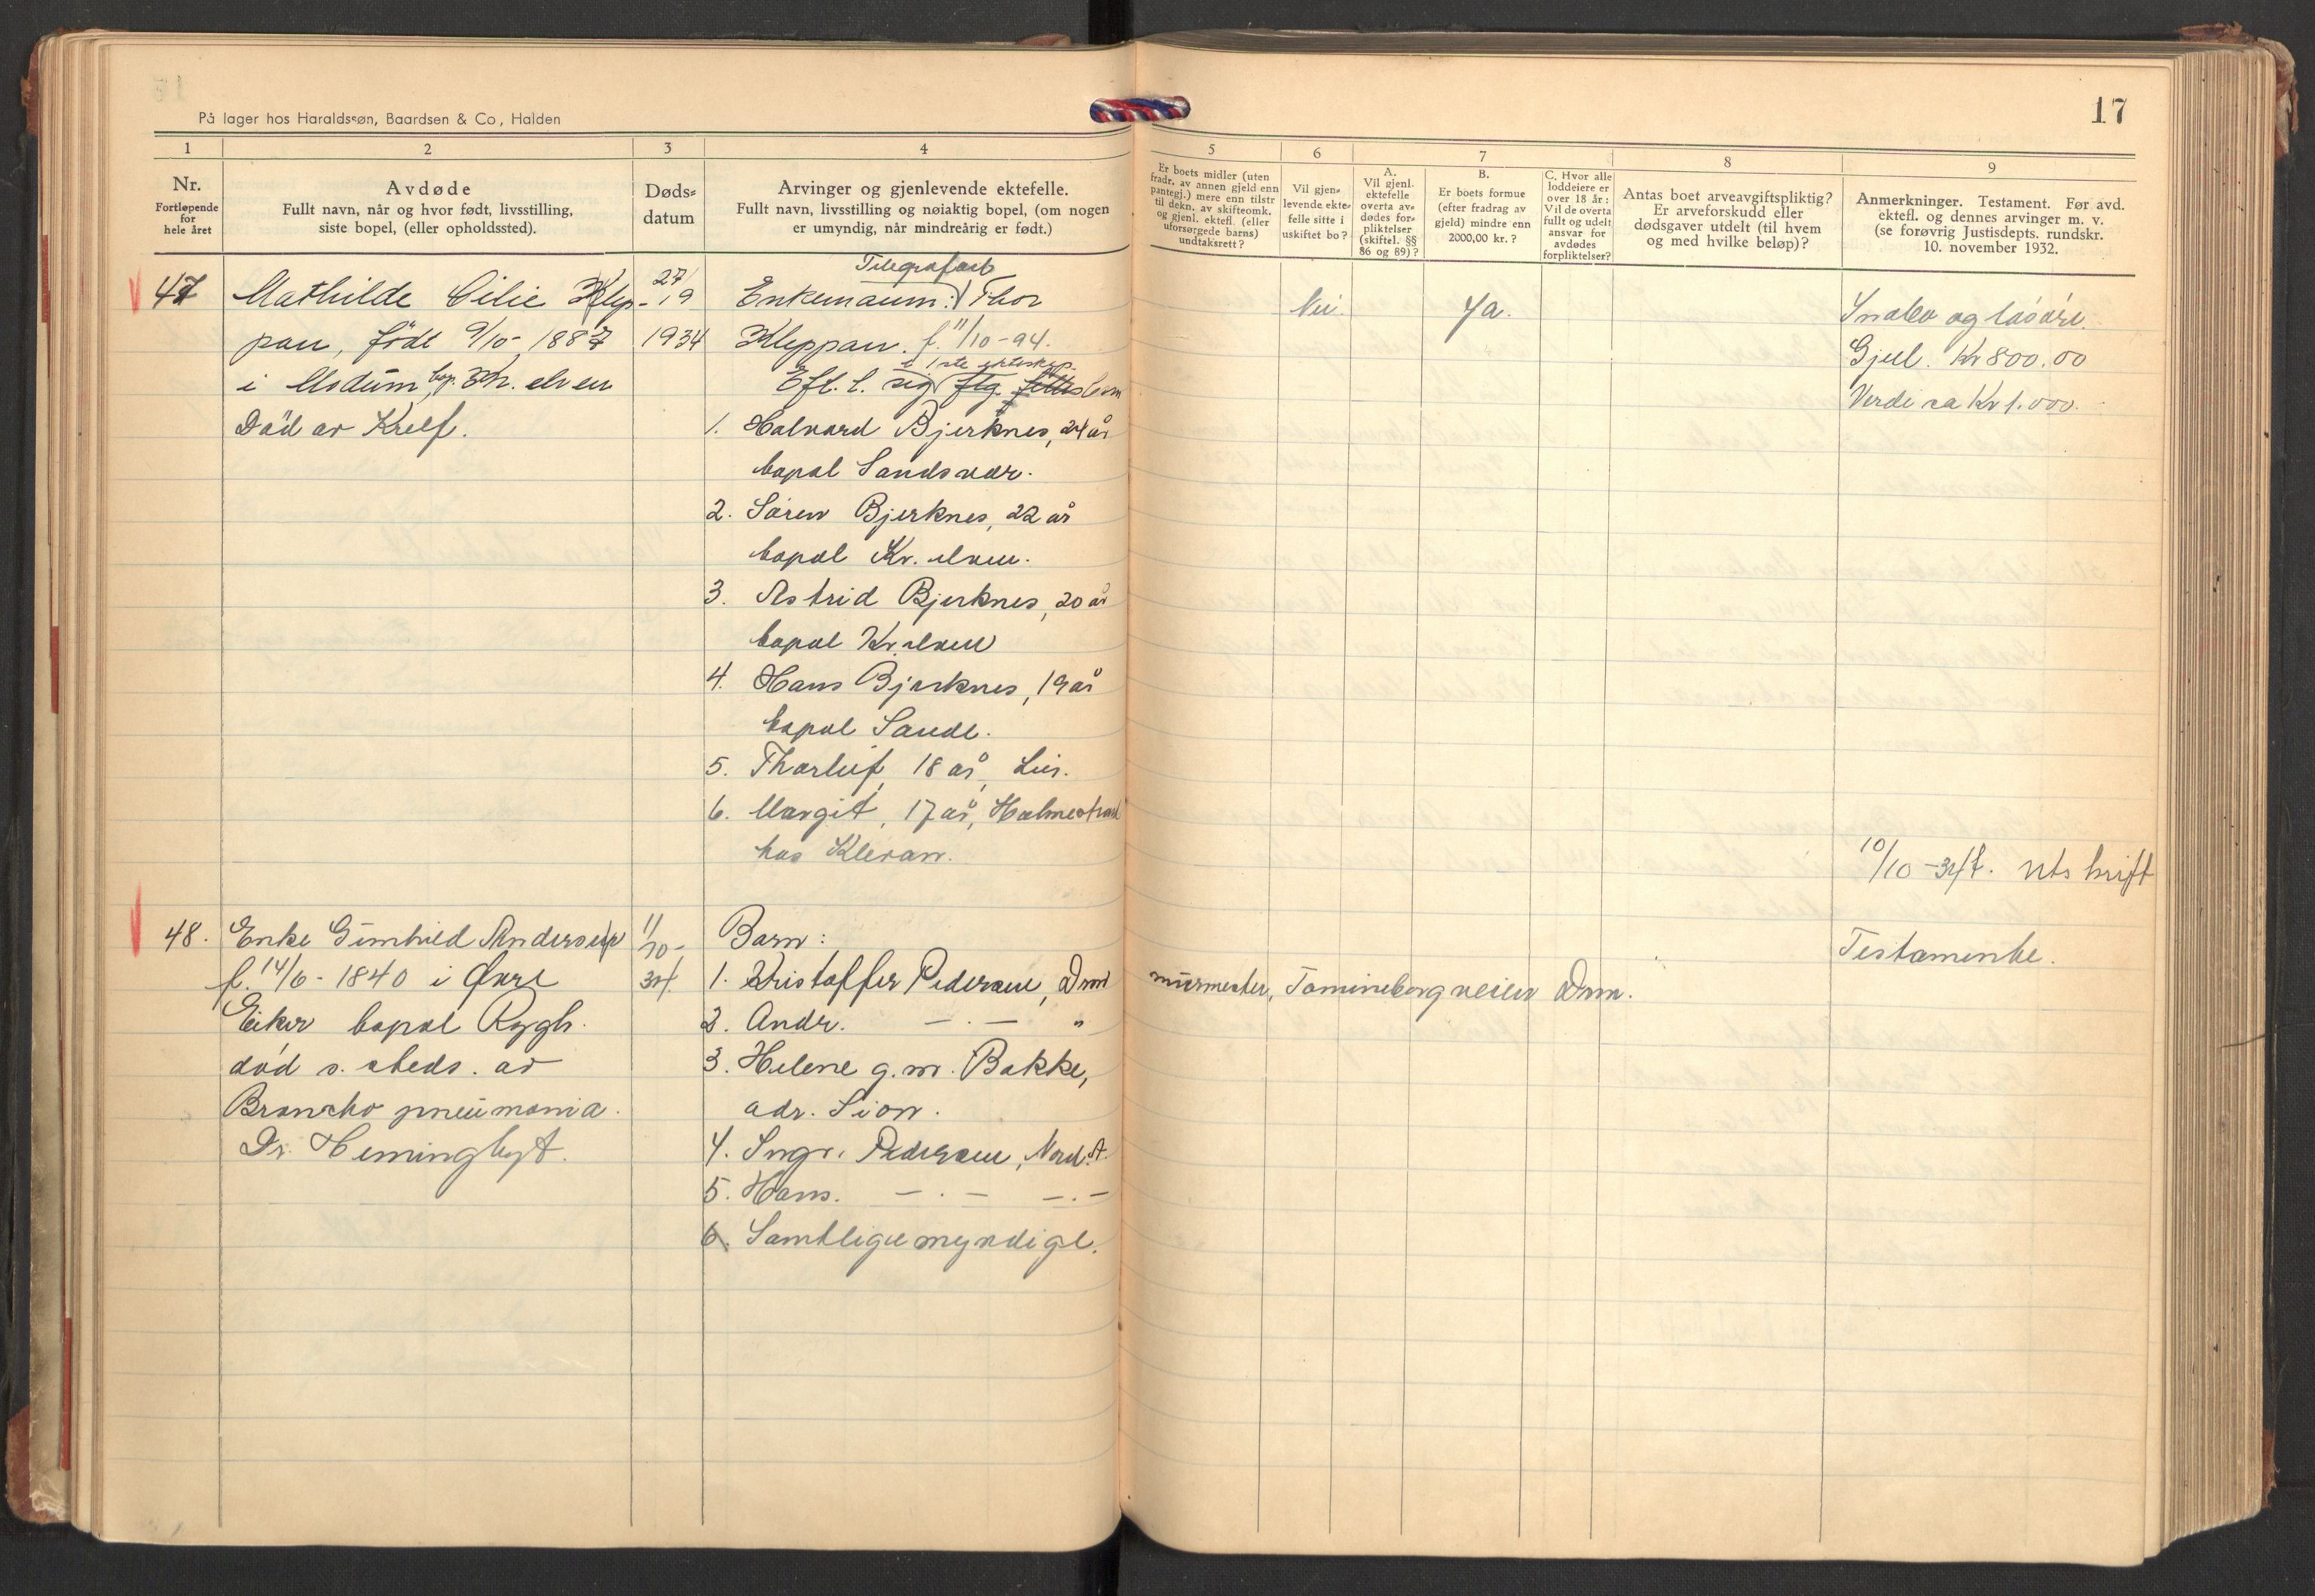 På lager hos Haraldssøn, Baardsen & Co, Halden
17
1
2
3
4
5
6
7
8
9
Nr.
Fortløpende
for
hele året
Avdøde
Fullt navn, når og hvor født, livsstilling,
siste bopel, (eller opholdssted).
Døds-
datum
Arvinger og gjenlevende ektefelle.
Fullt navn, livsstilling og nøiaktig bopel, (om nogen
er umyndig, når mindreårig er født.)
Er boets midler (uten
fradr. av annen gjeld enn
pantegj.) mere enn tilstr
til dekn. av skifteomk.
og gjenl. ektefl. (eller
uforsørgede barns)
undtaksrett?
Vil gjen-
levende ekte-
felle sitte i
uskiftet bo?
A.
Vil gjenl.
ektefelle
overta av-
dødes for-
pliktelser
(skiftel. §§
86 og 89)?
B.
Er boets formue
(efter fradrag av
gjeld) mindre enn
2000,00 kr.?
C. Hvor alle
loddeiere er
over 18 år:
Vil de overta
fullt og udelt
ansvar for
avdødes
forpliktelser?
Antas boet arveavgiftspliktig?
Er arveforskudd eller
dødsgaver utdelt (til hvem
og med hvilke beløp)?
Anmerkninger. Testament. Før avd.
ektefl. og dennes arvinger m. v.
(se forøvrig Justisdepts. rundskr.
10. november 1932.
47
Mathilde Cilie Klep-
pan, født 9/10-1887
i Modum, bop. Kr. elven
Død av Kreft.
27/9
1934
Telegrafarb
Enkemann: Thor
Kleppan. f. 11/10-94.
i 1ste ekteskap.
Efl. l. sig flg. felles barn
1. Halvard Bjerknes, 24 år
bopæl Sandsvær.
2. Søren Bjerknes, 22 år
bopæl Kr. elven.
3. Astrid Bjerknes, 20 år
bopæl Kr. elven
4. Hans Bjerknes, 19 år
bopæl Sande.
5. Thorleif, 18 år, Lier.
6. Margit, 17 år, Holmestrand
hos Klevan.
Nei.
Ja.
Innbo og løsøre.
Gjeld. Kr 800.00
Verdi ca Kr 1.000.
10/10-34 f. utskrift
48.
Enke Gunhild Andersen
f. 14/6-1840 i Øvre
Eiker bopæl Ryggh.
død s. steds. av
Broncho pneumonia.
Dr. Heminghyt.
11/10-
34.
Barn:
1. Kristoffer Pedersen, Drm murmester, Tomineborgveien Drm.
2. Andr. — . — "
3. Helene g.m. Bakke,
adr. Lion.
4. Ingv. Pedersen, Nord.A.
5. Hans. — . — — . —
6. Samtlige myndige.
Testamente.